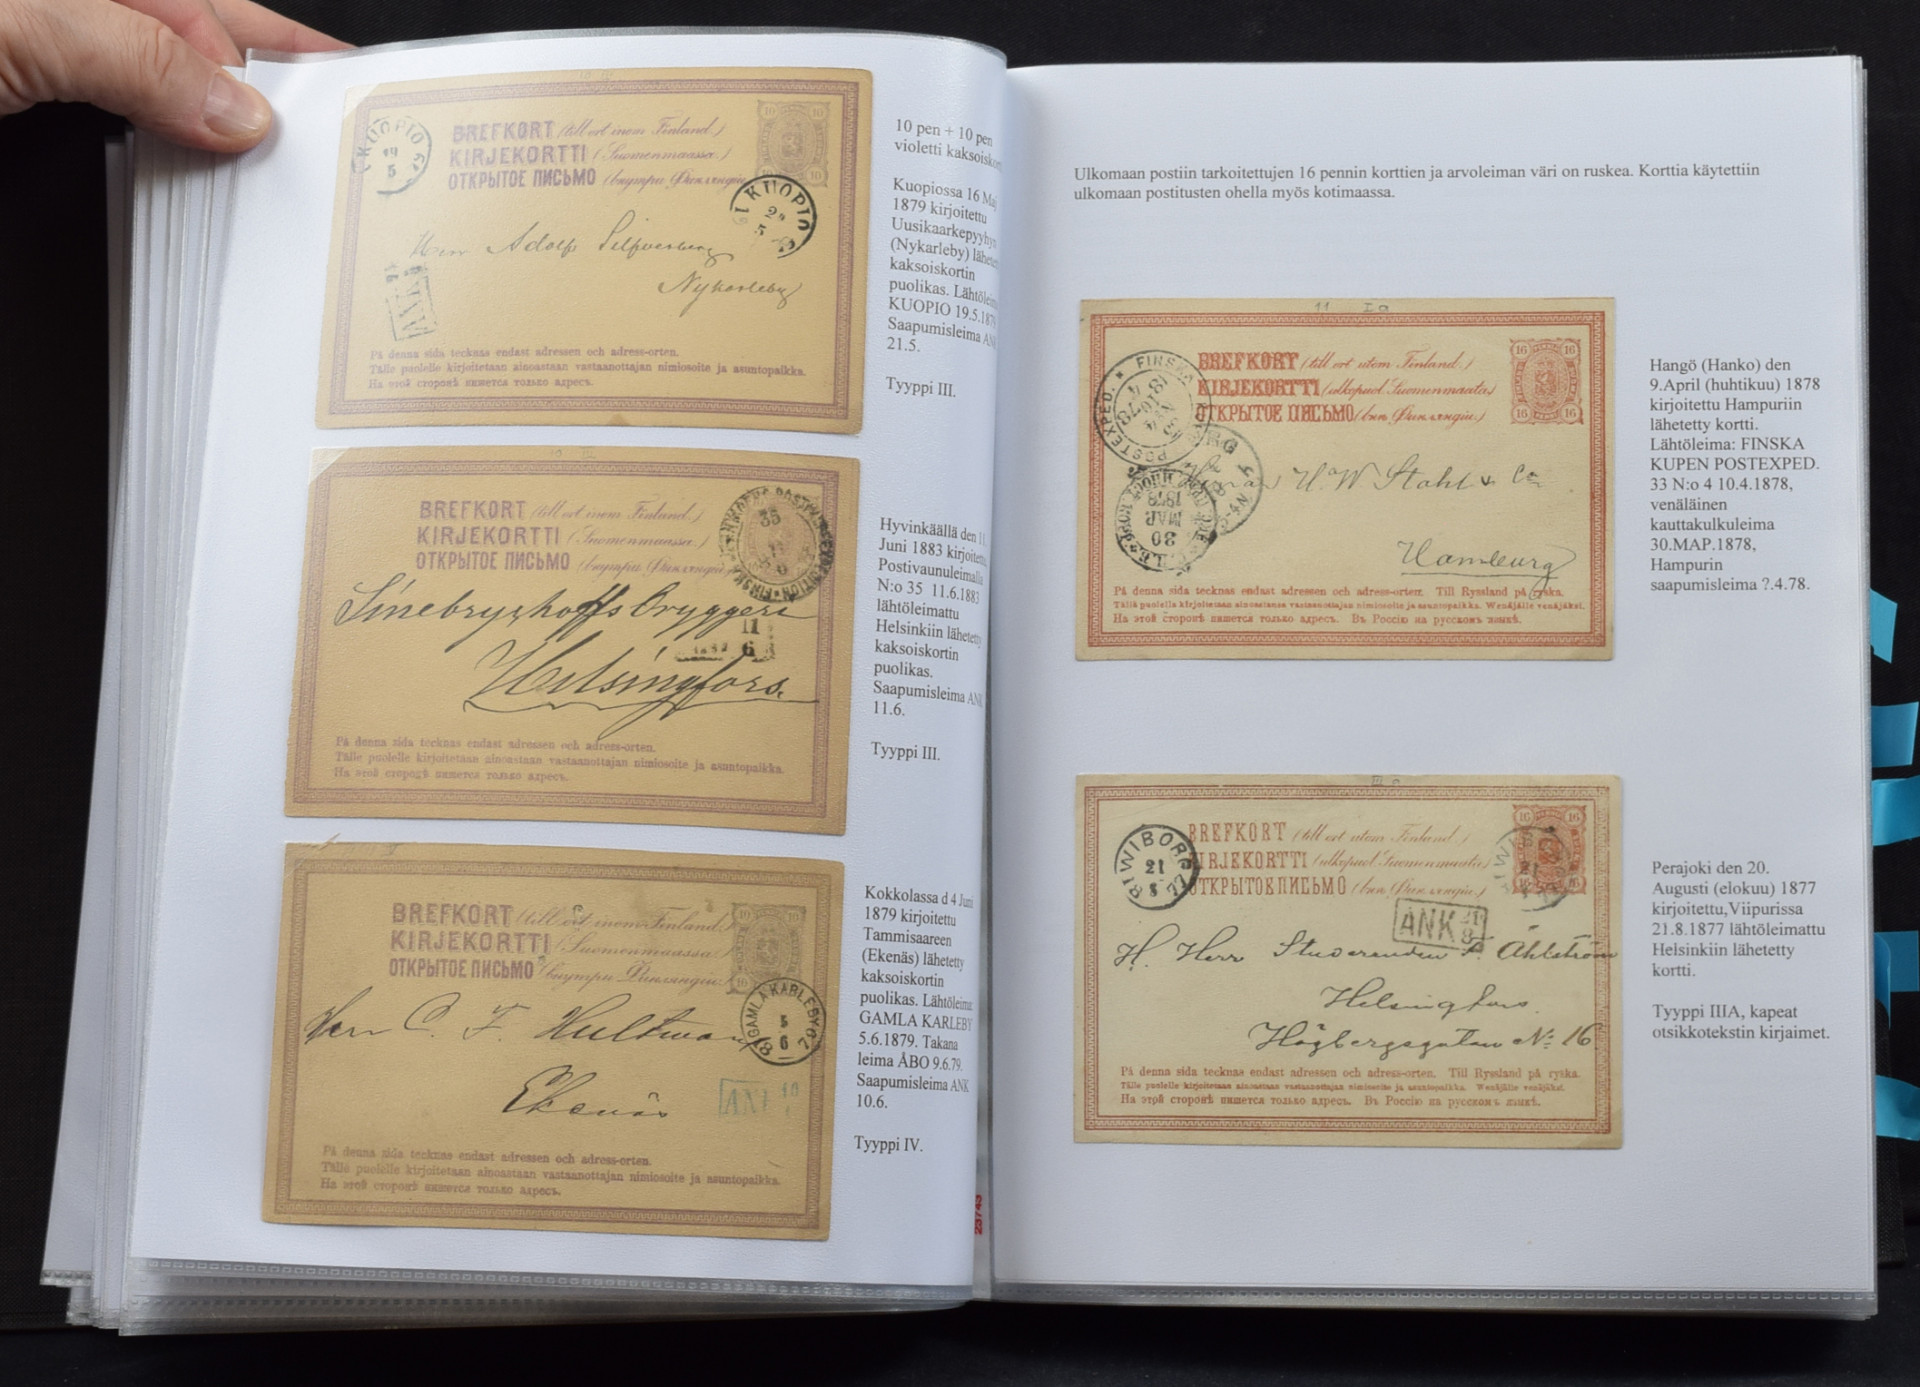 KUOPIO
19
5
BREFKORT (till ort inom Finland.)
KIRJEKORTTI (Suomenmaassa.)
ОТКРЫТОЕ ПИСЬМО (внутри Финляндіи
10 10
10
KUOPIO
5
Herr Adolf
Nykarleby
ANK
På denna sida tecknas endast adressen och adress-orten.
Tälle puolelle kirjoitetaan ainoastaan vastaanottajan nimiosoite ja asuntopaikka.
На этой сторонѣ пишется только адресъ.
10 pen + 10 pen
violetti
Kuopiossa 16
1879 kirjoitettu
Uusikaarkepyyhyn
(Nykarleby)
kaksoiskortin
puolikas.
KUOPIO 19.5.
Saapumisleima
21.5.
Tyyppi III.
BREFKORT (till ort inom Finland.)
KIRJEKORTTI (Suomenmaassa.)
ОТКРЫТОЕ ПИСЬМО (внутри Финляндіи
35
Sinebrychoffs Bryggeri
11
6
Helsingfors.
På denna sida tecknas endast adressen och adress-orten.
Tälle puolelle kirjoitetaan ainoastaan vastaanottajan nimiosoite ja asuntopaikka.
На этой сторонѣ пишется только адресъ.
Hyvinkäällä den
Juni 1883
Postivaunuleimalla
N:o 35 11.6.1883
lähtöleimattu
Helsinkiin lähetetty
kaksoiskortin
puolikas.
Saapumisleima
11.6.
Tyyppi III.
BREFKORT (till ort inom Finland.)
KIRJEKORTTI (Suomenmaassa
ОТКРЫТОЕ ПИСЬМО (внутри Финляндіи
10 10
10
GAMLA KARLEBY
5
6
18 79
Herr C. F. Hultman
Ekenäs
10
På denna sida tecknas endast adressen och adress-orten.
Tälle puolelle kirjoitetaan ainoastaan vastaanottajan nimiosoite ja asuntopaikka.
На этой сторонѣ пишется только адресъ.
Kokkolassa d 4 Juni
1879 kirjoitettu
Tammisaareen
(Ekenäs) lähetetty
kaksoiskortin
puolikas. Lähtöleima
GAMLA KARLEBY
5.6.1879. Takana
leima ÅBO 9.6.79.
Saapumisleima ANK
10.6.
Tyyppi IV.
23743
Ulkomaan postiin tarkoitettujen 16 pennin korttien ja arvoleiman väri on ruskea. Korttia käytettiin
ulkomaan postitusten ohella myös kotimaassa.
11 I a
BREFKORT (till ort utom Finland.)
KIRJEKORTTI (ulkopuol. Suomenmaata)
ОТКРЫТОЕ ПИСЬМО (внѣ Финляндіи)
16 16
16 16
FINSKA
POSTEXPED.
30
МАР
1878
Stahl & Co
Hamburg
På denna sida tecknas endast adressen och adress-orten. Till Ryssland på ryska.
Tällä puolella kirjoitetaan ainoastansa vastaanottajan nimiosoite ja asuntopaikka. Wenäjälle venäjäksi.
На этой сторонѣ пишется только адресъ. Въ Россію на русскомъ языкѣ.
Hangö (Hanko) den
9.April (huhtikuu) 1878
kirjoitettu Hampuriin
lähetetty kortti.
Lähtöleima: FINSKA
KUPEN POSTEXPED.
33 N:o 4 10.4.1878,
venäläinen
kauttakulkuleima
30.MAP.1878,
Hampurin
saapumisleima ?.4.78.
BREFKORT (till ort utom Finland.)
KIRJEKORTTI (ulkopuol. Suomenmaata)
ОТКРЫТОЕ ПИСЬМО (внѣ Финляндіи)
16 16
16
WIBORG
21
8
18 77
ANK 21
8
H. Herr Studeranden F. Åhlström
Helsingfors.
Högbergsgatan No 16
På denna sida tecknas endast adressen och adress-orten. Till Ryssland på ryska.
Tälle puolelle kirjoitetaan ainoastaan vastaanottajan nimiosoite ja asuntopaikka. Wenäjälle venäjäksi.
На этой сторонѣ пишется только адресъ. Въ Россію на русскомъ языкѣ.
Perajoki den 20.
Augusti (elokuu) 1877
kirjoitettu,Viipurissa
21.8.1877 lähtöleimattu
Helsinkiin lähetetty
kortti.
Tyyppi IIIA, kapeat
otsikkotekstin kirjaimet.